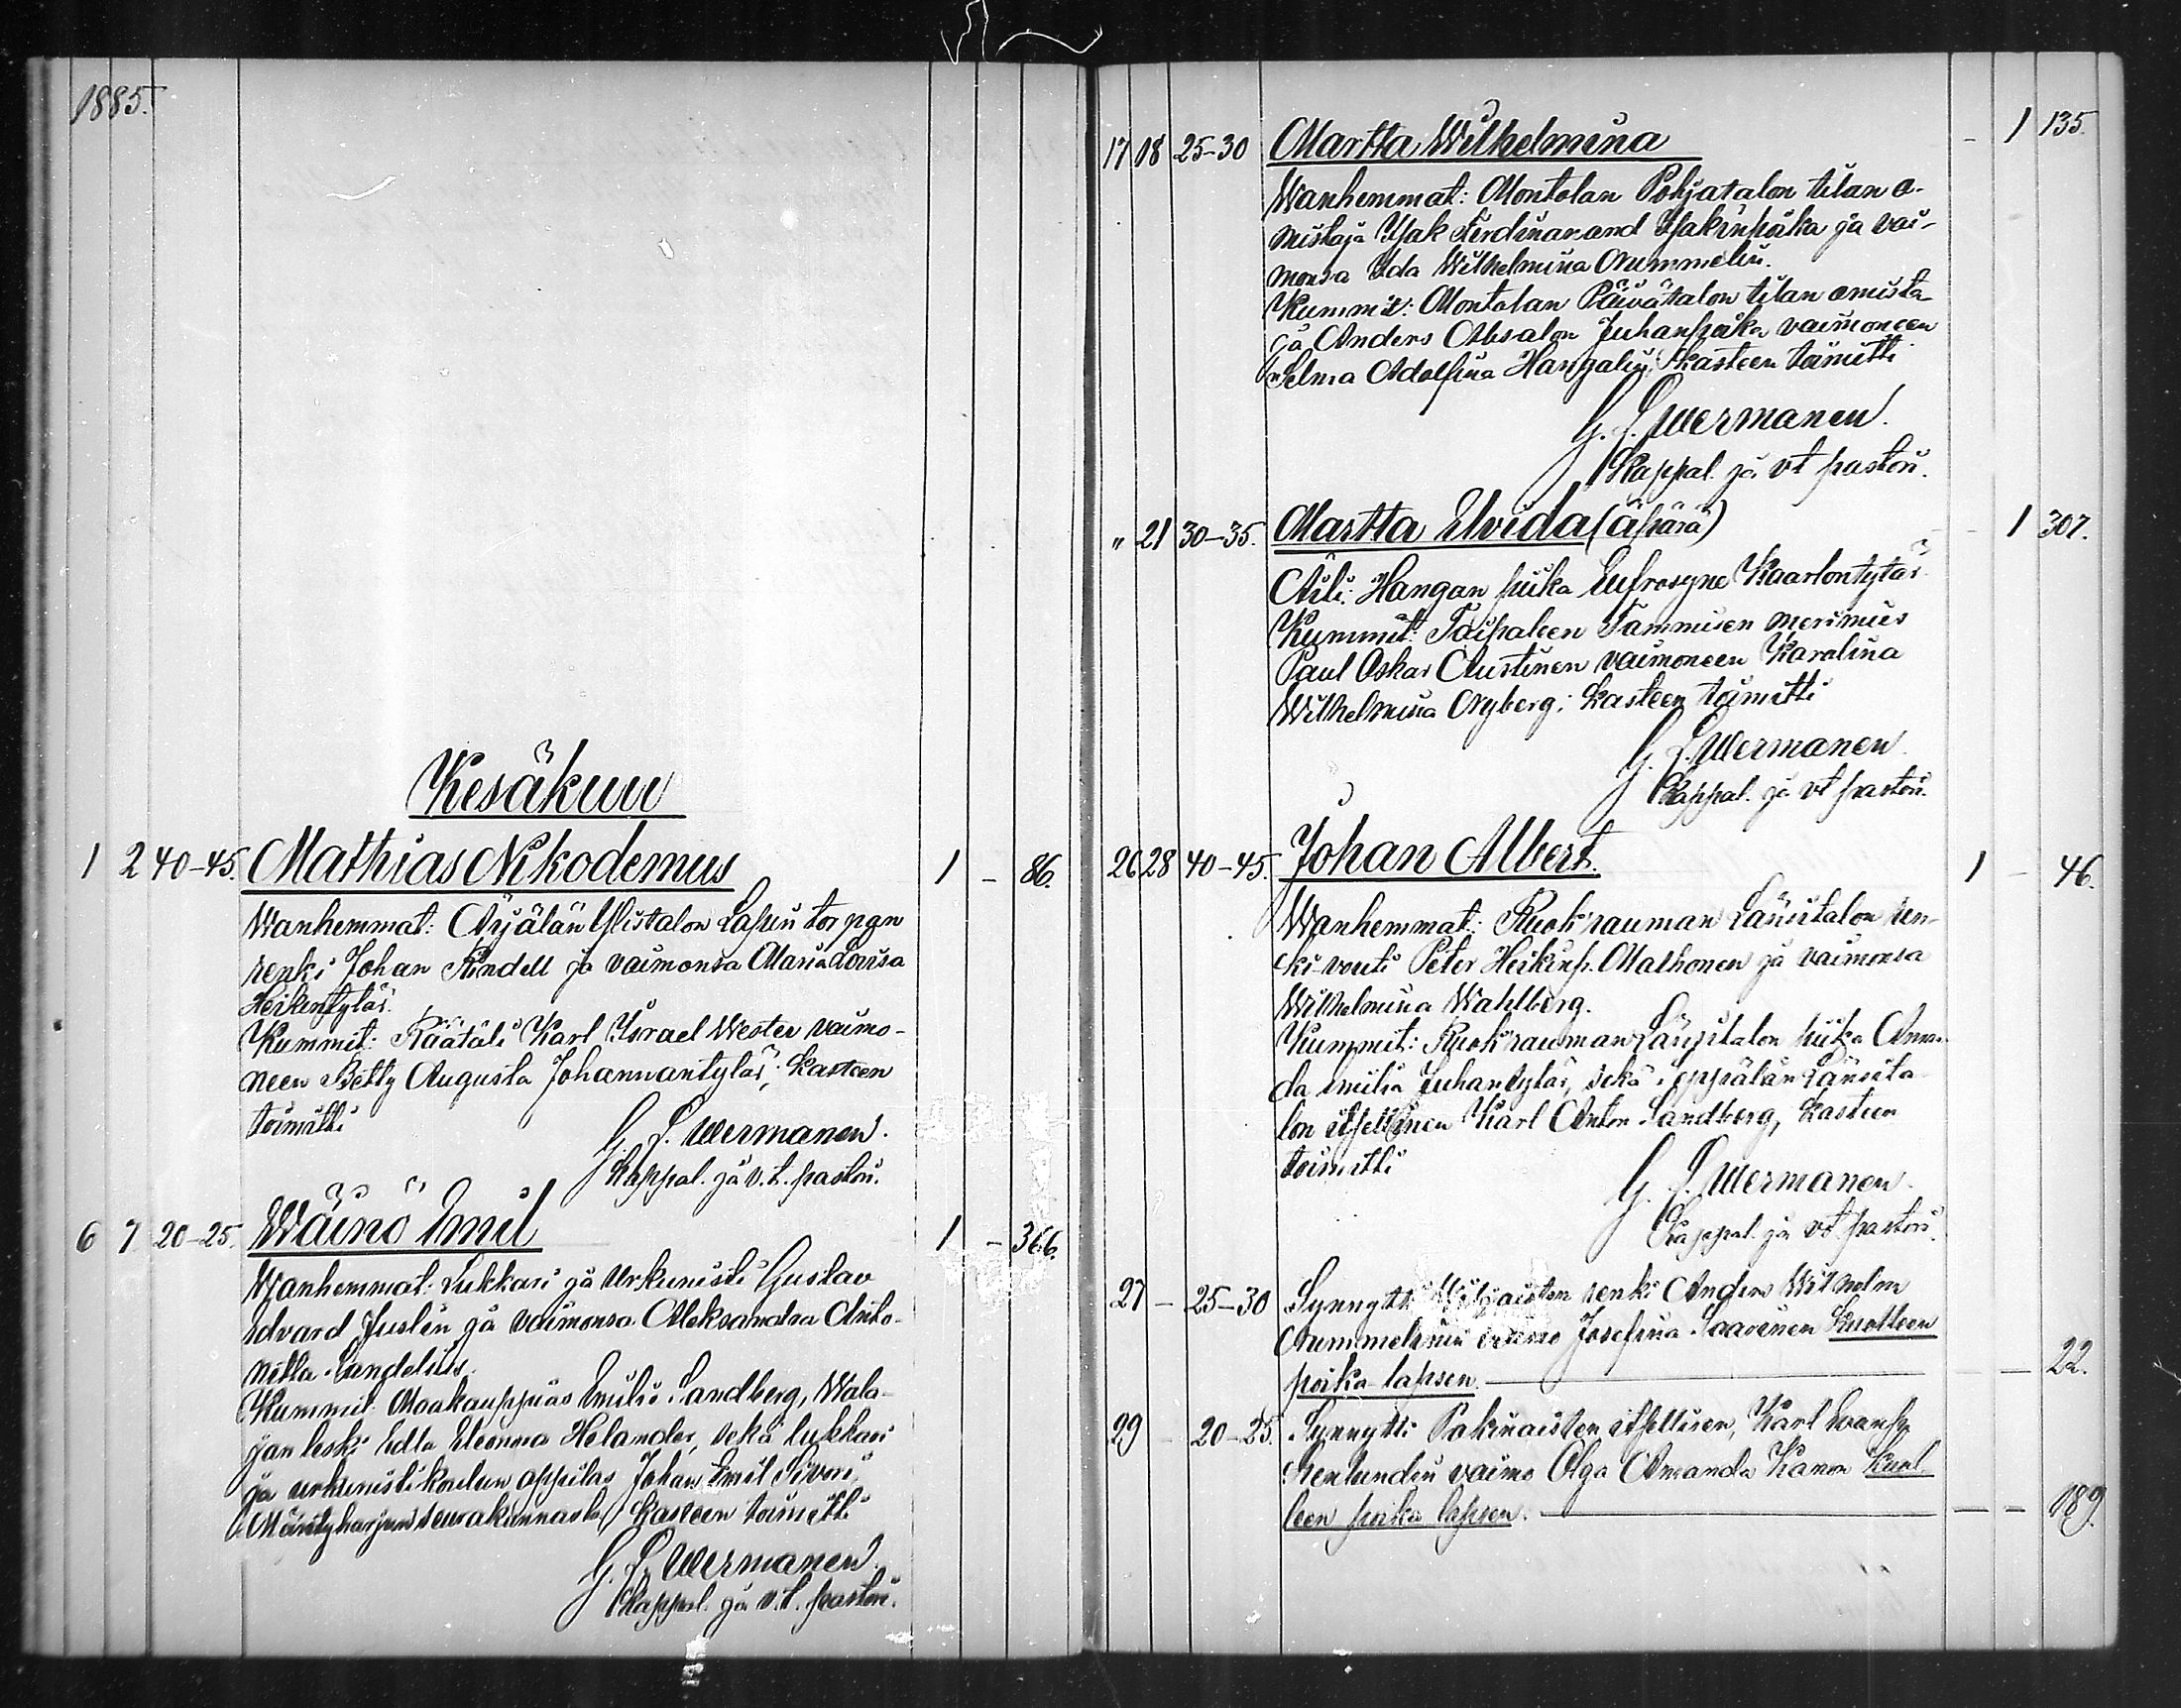 1885.
Kesäkuu
1 2 40-45. Mathias Nikodemus 1 - 86.
Wanhemmat: Arjälän Ylistalon Lapin torpan
renki Johan Rindell ja vaimonsa Maria Lovisa
Heikintytär.
Kummit: Räätäli Karl Israel Wester vaimo-
neen Betty Augusta Johannantytär; Kasteen
toimitti
G. L. Wermanen.
Kappal. ja v.t. pastori.
6 7 20-25. Wäinö Emil 1 - 366.
Wanhemmat: Lukkari ja Urkuristi Gustav
Edvard Juslin ja vaimonsa Aleksandra Anto-
netta Sundelius.
Kummit: Maakauppias Emilie Sandberg, Wala-
jan leski Edla Eleonora Helander, sekä lukkari
ja urkuristikoulun oppilas Johan Emil Sivori,
Mäntyharjun seurakunnasta, Kasteen toimitti
G. L. Wermanen.
Kappal. ja v.t. pastori.
17 18 25-30 Martta Wilhelmina - 1 135.
Wanhemmat: Montolan Pohjatalon tilan o-
mistaja Isak Ferdinand Isakinpoika ja vai-
monsa Ida Wilhelmina Nummelin.
Kummit: Montolan Päivätalon tilan omista-
ja Anders Absalon Juhanpoika vaimoneen
Selma Adolfina Hangelin; Kasteen toimitti
G. L. Wermanen.
Kappal. ja vt pastori.
" 21 30-35. Martta Elvida (äpärä) - 1 307.
Äiti: Hangan piika Eufrosyne Kaarlontytär
Kummit: Taipaleen Tammisen merimies
Paul Oskar Austinen vaimoneen Karolina
Wilhelmina Nyberg; Kasteen toimitti
G. L. Wermanen.
Kappal. ja vt pastori.
26 28 40-45. Johan Albert. 1 - 46.
Wanhemmat: Ruokrauman Länsitalon ren-
ki-vouti Peter Heikinp. Malhonen ja vaimonsa
Wilhelmina Wahlberg.
Kummit: Ruokrauman Länsitalon piika Aman-
da Emilia Juhantytär, sekä Leppälän Länsita-
lon itsellinen Karl Anton Sandberg, Kasteen
toimitti
G. L. Wermanen.
Kappal. ja vt pastori.
27 - 25-30 Synnytti renki Anders Wilhelm
Nummelinin vaimo Josefina Saarinen Kuolleen
poika lapsen. - - 22.
29 - 20-25. Synnytti Pakinaisten itsellisen, Karl Evanp.
Stenlundin vaimo Olga Amanda Kanon Kuol-
leen poika lapsen. - - 189.